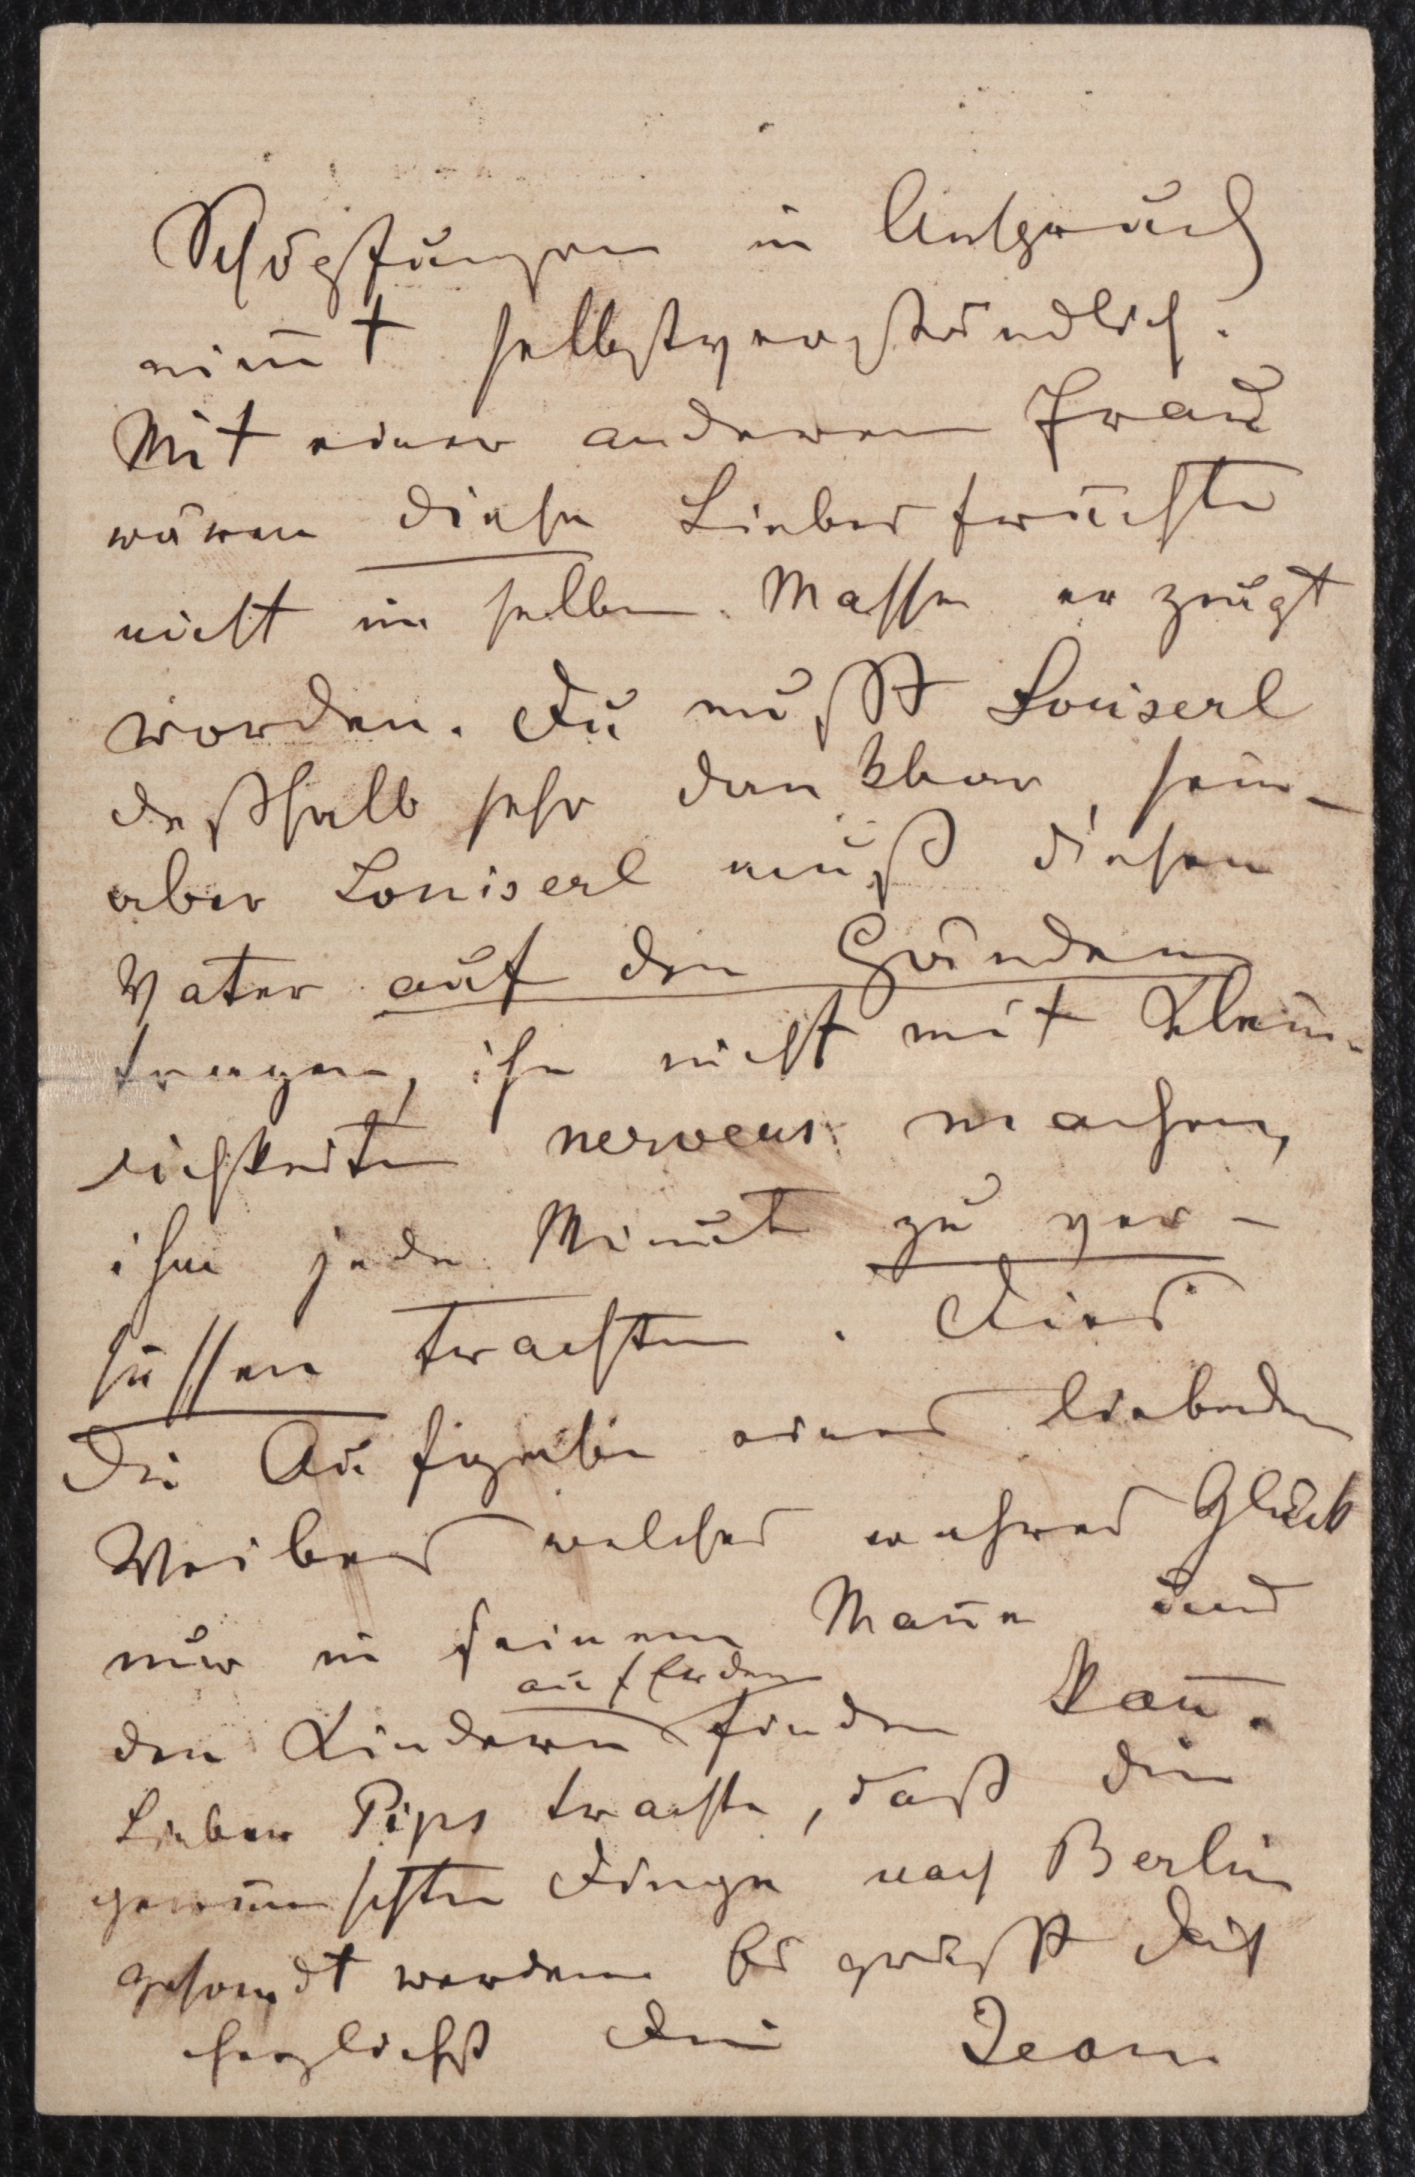 Schöpfungen in Anspruch
nim̅t selbstverständlich.
Mit einer anderen Frau
wären diese Liebesfrüchte
nicht im selben Masse erzeugt
worden. Du mußt Louiserl
deßhalb sehr dankbar, sein –
aber Louiserl muß diesen
Vater auf den Händen
tragen, ihn nicht mit Klein-
lichkeiten nerveus machen,
ihm jede Minute zu ver-
süssen trachten. Dies
die Aufgabe eines liebenden
Weibes welches wahres Glück
nur in seinem Man̅e und
auf Erden
den Kindern finden kan̅.
Lieber Pips trachte, daß die
gewünschten Dinge nach Berlin
gesandt werden Es grüsst Dich
herzlichst Dein Jean